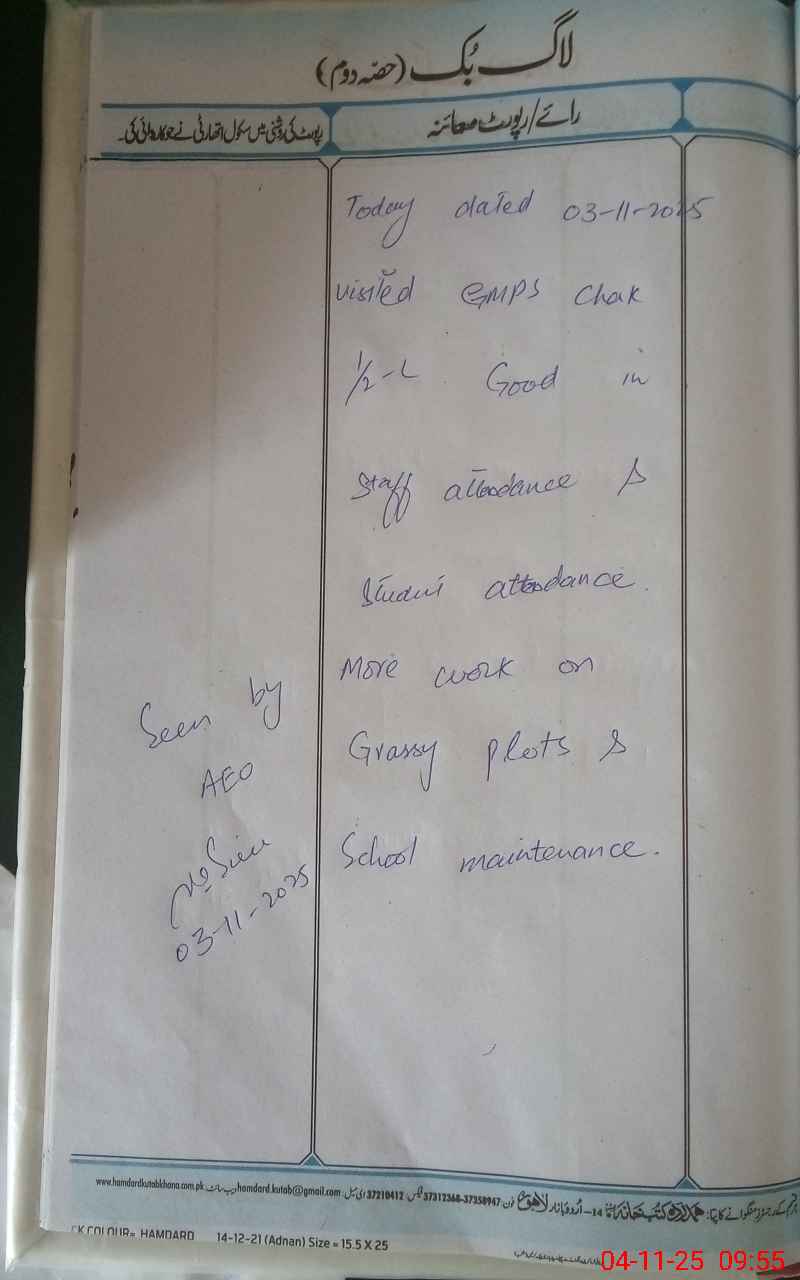 لاگ بُک (حصّہ دوم)
رائے/رپورٹ معائنہ
رپورٹ کی روشنی میں سکول اتھارٹی نے جو کاروائی کی۔
Today dated 03-11-2025
visited GMPS Chak
1/2-L Good in
staff attendance &
student attendance.
More work on
Grassy plots &
School maintenance.
Seen by
AEO
03-11-2025
www.hamdardkutabkhana.com.pk ویب سائٹ hamdard.kutab@gmail.com ای میل 37210412 فیکس 37312368-37358947 فون
ہمدرد کتب خانہ 14-اُردو بازار لاہور
CK COLOUR= HAMDARD 14-12-21 (Adnan) Size = 15.5 X 25
04-11-25 09:55